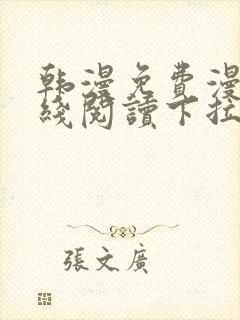 韩漫免费漫
线閱讀下拉
張文廣